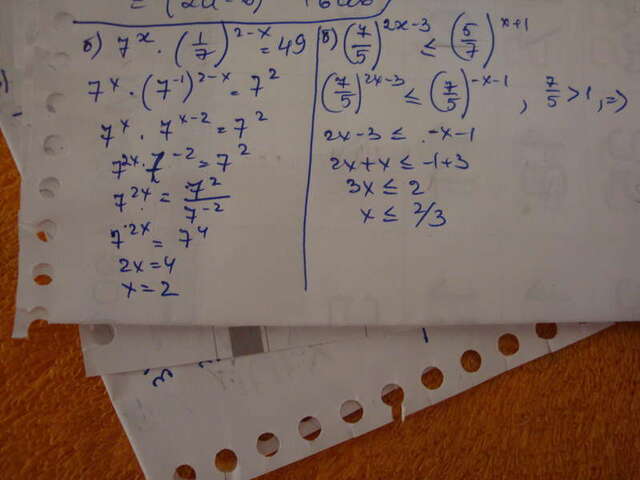 б) 7^x · (1/7)^(2-x) = 49
7^x · (7^(-1))^(2-x) = 7^2
7^x · 7^(x-2) = 7^2
7^(2x) · 7^(-2) = 7^2
7^(2x) = 7^2/7^(-2)
7^(2x) = 7^4
2x = 4
x = 2
в) (7/5)^(2x-3) ≤ (5/7)^(x+1)
(7/5)^(2x-3) ≤ (7/5)^(-x-1) , 7/5 > 1, =>
2x-3 ≤ -x-1
2x+x ≤ -1+3
3x ≤ 2
x ≤ 2/3